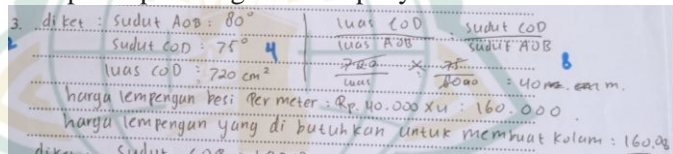 3. diket : Sudut AOB : 80°
Sudut COD : 75°
luas COD : 720 cm²
luas COD : Sudut COD
luas AOB Sudut AOB
720 × 75
luas 80
4
8
= 40 m.
harga lempengan besi Per meter : Rp. 40.000 x 4 : 160.000
harga lempengan yang di butuhkan untuk membuat kolam : 160.00